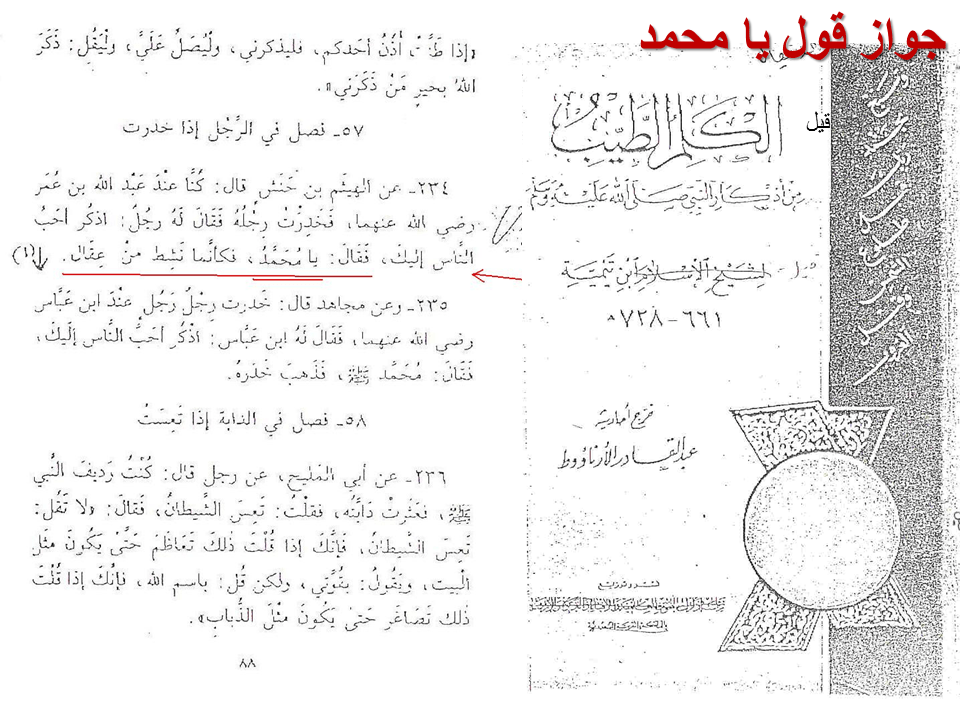 جواز قول يا محمد
«إذا طَنَّتْ أُذُنُ أحَدكم، فليذكرني، ولْيُصَلِّ عَلَيَّ، ولْيَقُل: ذَكَرَ
اللهُ بخيرٍ مَنْ ذَكَرَني».
٥٧ـ فصل في الرَّجْل إذا خدرت
٢٣٤ـ عن الهيثَم بن حَنَش قال: كُنَّا عنْدَ عَبْد الله بن عُمَر
رضي الله عنهما، فَخَدِرَتْ رِجْلُهُ فَقَالَ لَهُ رجُلٌ: اذكُر أحَبَّ
النَّاس إليكَ، فَقَالَ: يا مُحَمَّدُ، فكأنَّما نَشِطَ منْ عِقَال. (١)
٢٣٥ـ وعن مجاهد قال: خَدرت رِجْلُ رَجُلٍ عنْدَ ابن عَبَّاس
رضي الله عنهما، فَقَالَ لَهُ ابن عبَّاس: اذْكُر أحَبَّ النَّاس إلَيكَ،
فَقَالَ: مُحَمَّد ﷺ، فَذَهبَ خَدَرهُ.
٥٨ـ فصل في الدابة إذا تَعِسَتْ
٢٣٦ـ عن أبي المَليح، عن رجل قال: كُنْتُ رَديفَ النَّبي
ﷺ، فَعَثَرتْ دَابَّتُه، فقلْتُ: تَعِسَ الشَّيطانُ، فَقَالَ: «لا تَقُل:
تَعِسَ الشَّيطانُ، فَإنَّكَ إذا قُلْتَ ذلكَ تَعَاظَمَ حَتَّى يَكُونَ مثْلَ
الْبيت، ويَقُولُ: بقُوَّتي، ولكن قُل: باسم الله، فإنَّكَ إذا قُلْتَ
ذلك تَصَاغَر حَتى يَكُونَ مثْلَ الذُّبابِ».
٨٨
الكلم الطيب
قيل
من أذكار النبي صلى الله عليه وسلم
لشيخ الإسلام ابن تيمية
٦٦١-٧٢٨ هـ
خرج أحاديثه
عبد القادر الأرناؤوط
نشر وتوزيع